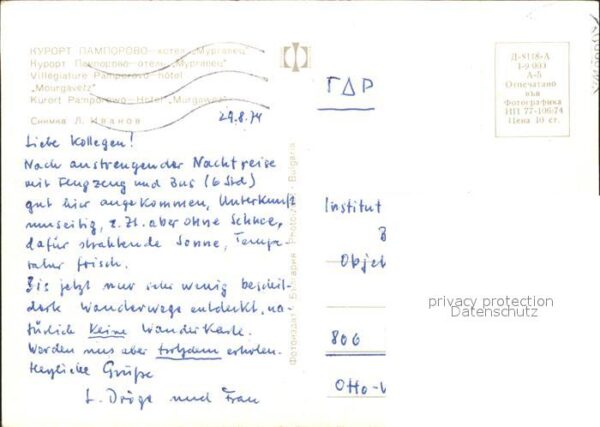 КУРОРТ ПАМПОРОВО — хотел „Мургавец"
Курорт Пампорово — отель „Мургавец"
Villégiature Pamporovo — hôtel
„Mourgavetz"
Kurort Pamporowo — Hotel „Murgawez"
Снимка Л. Иванов
29.8.74
Liebe Kollegen!
Nach anstrengender Nachtreise
mit Flugzeug und Bus (6 Std)
gut hier angekommen, Unterkunft
z. Zt. aber ohne Schnee,
dafür strahlende Sonne, Tempe-
ratur frisch.
Bis jetzt nur sehr wenig beschil-
derte Wanderwege entdeckt, na-
türlich keine Wanderkarte.
Werden uns aber trotzdem erholen.
Herzliche Grüße
L. Dröge und Frau
Фотоиздат · България · Bulgaria
ГДР
Institut
Objek
806
Otto-
Д-8118-А
А-5
Отпечатано
във
Фотографика
ИП 77-106/74
Цена 10 ст.
privacy protection
Datenschutz